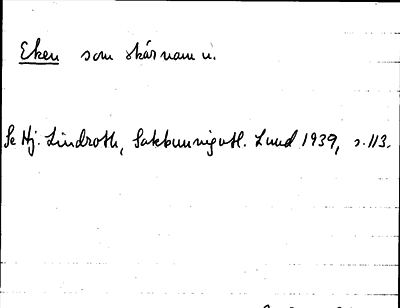 Eken som skärnamn.
Se Hj. Lindroth, Lund 1939, s. 113.